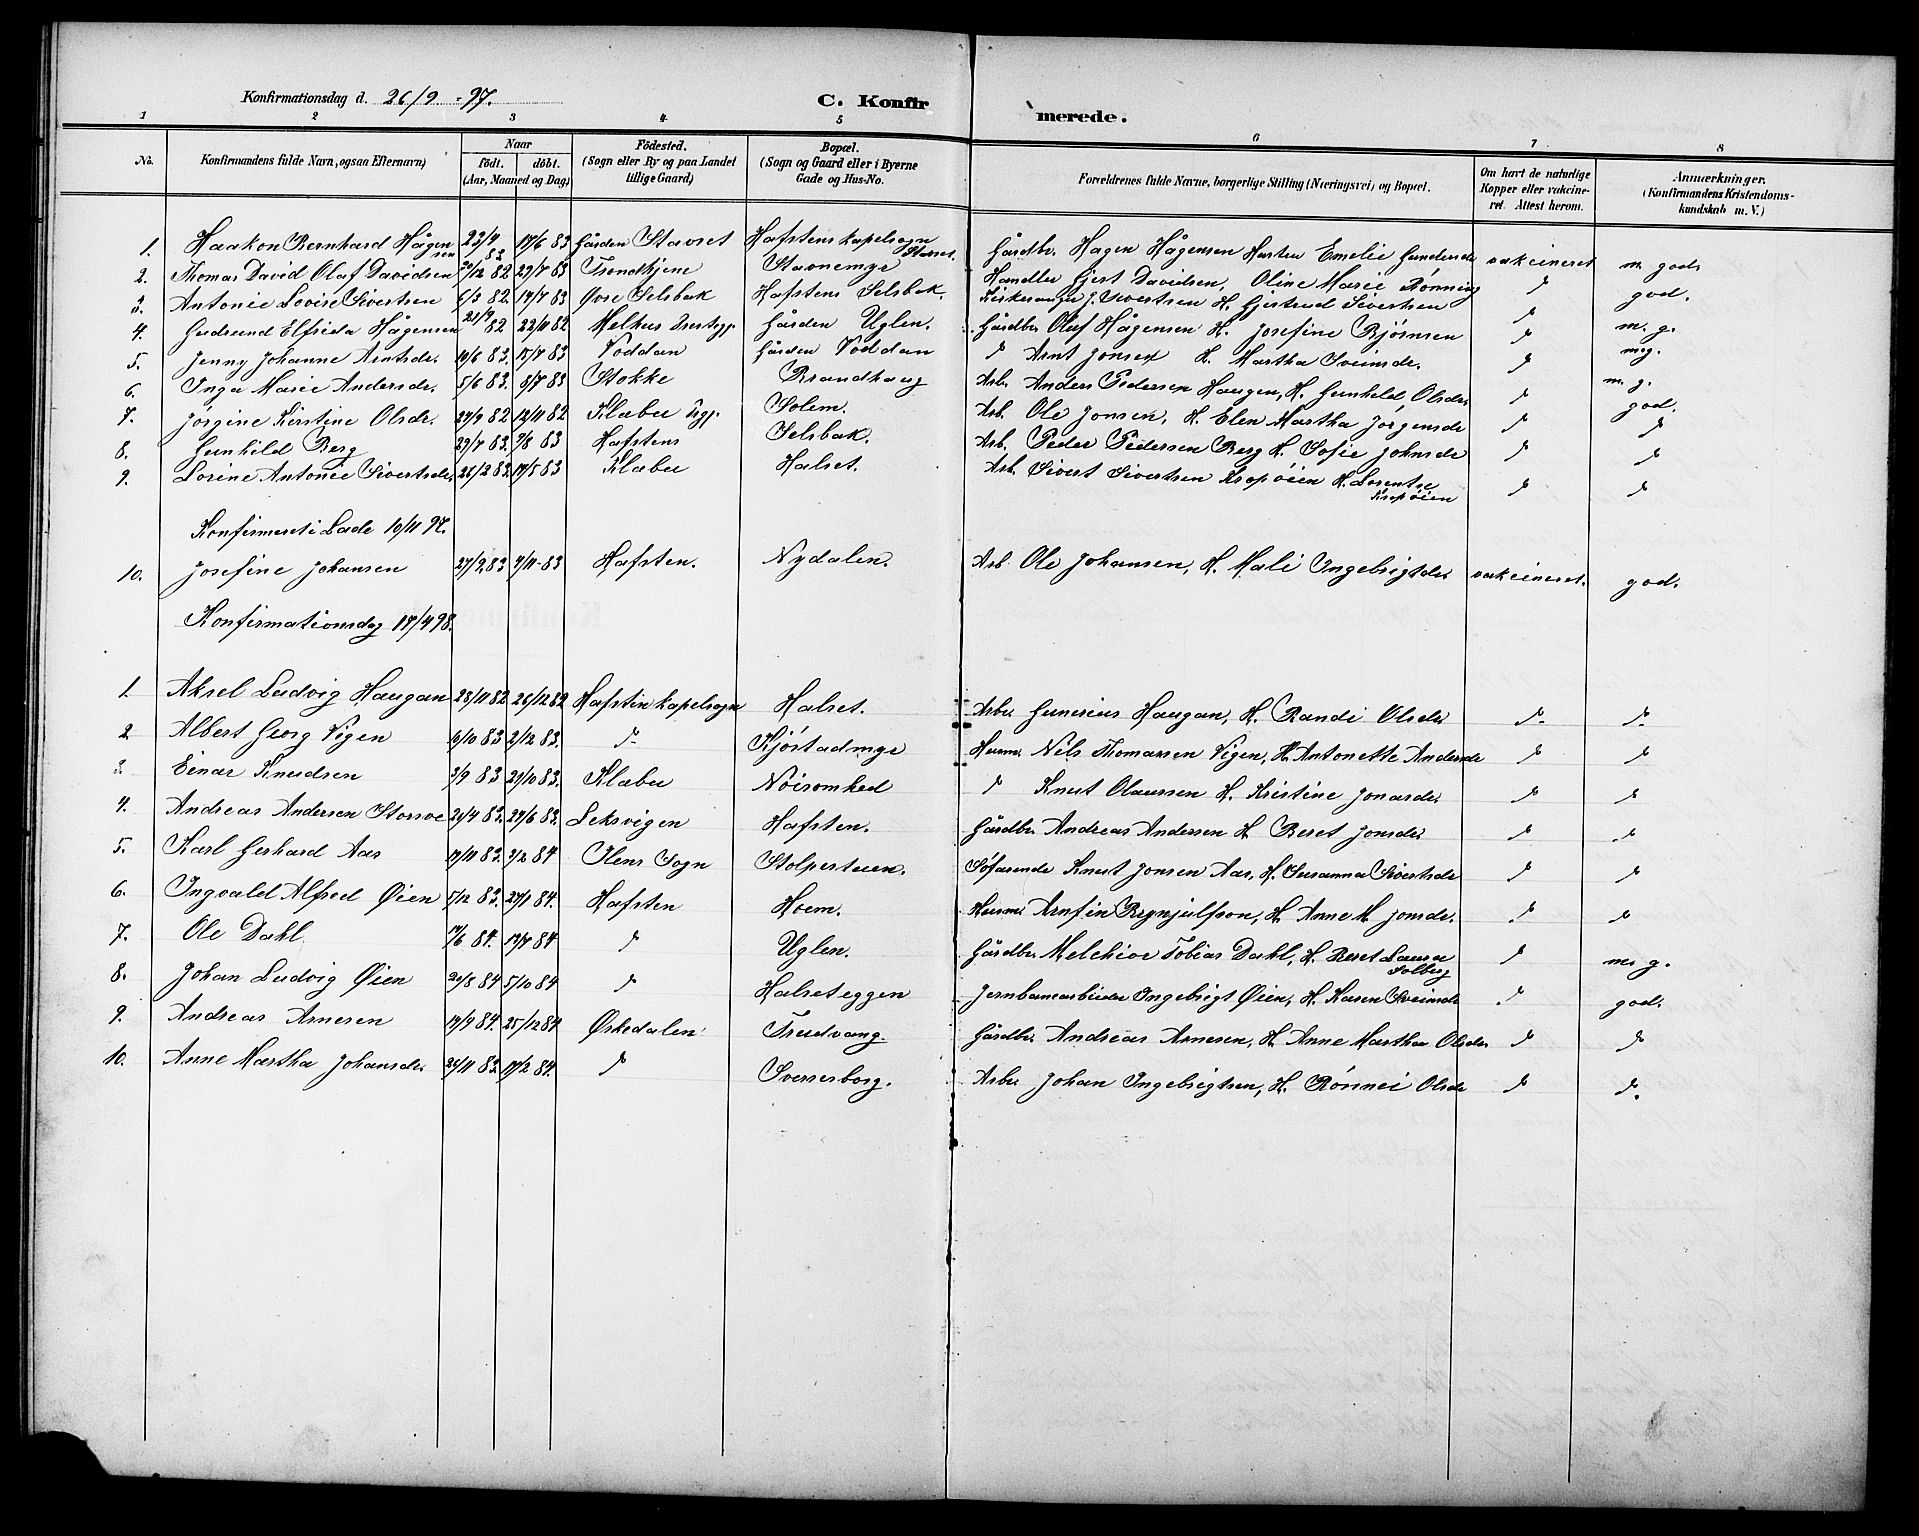 Konfirmationsdag d. 26/9 - 97.
C. Konfir
merede.
1 2 3 4 5 6 7 8
No. Konfirmandens fulde Navn, ogsaa Efternavn) Naar Födested. Bopæl. Forældrenes fulde Navne, borgerlige Stilling (Næringsvei) og Bopæl. Om havt de naturlige Anmærkninger.
födt. döbt. (Sogn eller By og paa Landet (Sogn og Gaard eller i Byerne Kopper eller vakcine- (Konfirmandens Kristendoms-
(Aar, Maaned og Dag) tillige Gaard) Gade og Hus-No. ret. Attest herom. kundskab m. V.)
1. Haakon Bernhard Hågensen 23/9 82 17/6 83 Gården Stavset Hafstens kapelsogn Stavset. Gårdbr. Hagen Hågensen Hustru Emelie Gundersdr vakcineret m. god.
2. Thomas David Olaf Davidsen 30/12 82 29/7 83 Trondhjene Stavnemyr Handler Gjert Davidsen, Oline Marie Rønning " god.
3. Antonie Lovise Sivertsen 6/3 82. 19/7 83 Øvre Selsbak Hafstens Selsbak. Kirkesanger J. Sivertsen H. Gjertrud Sivertsen " m. g.
4. Gudrund Elfrida Hågensen 21/9 82 22/11 82 Melhus Præstegj. Gården Uglen. Gårdbr. Oluf Hågensen H. Josefine Bjørnsen " m.g.
5. Jenny Johanne Arntsdr. 10/6 83. 15/7 83 Voddan Gården Voddan " Arnt Jonsen H. Martha Sveinsdr. " m. g.
6. Inga Marie Andersdr. 5/6 83. 8/7 83 Stokke Brandhaug Arb. Anders Pedersen Haugen, H. Gunhild Olsdr. " god.
7. Jørgine Kirstine Olsdr. 27/9 82 12/11 82 Klæbu Pgj. Solem. Arb. Ole Jonsen, H. Elen Martha Jørgensdr " "
8. Gunhild Berg 29/7 83. 9/8 83 Hafstens Selsbak. Arb. Peder Pedersen Berg H. Sofie Johnsdr " "
9. Lorine Antonie Sivertsdr. 26/2 83. 17/5 83 Klæbu Halset. Arb. Sivert Sivertsen Kropøien H. Lorentse Kropøien " "
Konfirmeret i Lade 10/11 97.
10. Josefine Johansen 27/9 83 4/11-83 Hafsten. Nydalen. Arb. Ole Johansen, H. Mali Ingebrigtdr. vakcineret. god.
Konfirmationsdag 17/4 98.
1. Aksel Ludvig Haugan 28/11 82 26/12 82 Hafstin kapelsogn Halset. Arbr. Gunerius Haugan, H. Randi Olsdr " "
2. Albert Georg Vigen 10/10 83 2/12 83. " Kjøstadmyr Husm. Nils Thomassen Vigen, H. Antonette Andersdr " "
3. Einar Knudsen 3/9 83 29/10 83. Klæbu Nøisomhed " Knut Olaussen H. Kristine Jonasdr. " "
4. Andreas Andersen Storsve 20/4 83. 29/6 83. Leksvigen Hafsten. Gårdbr. Andreas Andersen H. Beret Jonsdr " "
5. Karl Gerhard Aas 19/11 83. 3/2 84 Ilens Sogn Stolpertuen. Søfarende Knut Jonsen Aas, H. Susanna Sivertsdr " "
6. Ingvald Alfred Øien 5/12 83. 27/1 84. Hafsten Hoem. Husm. Arnfin Brynjulfson, H. Anne M. Jonsdr. " "
7. Ole Dahl. 14/6 84. 19/7 84 " Uglen. Gårdbr. Melchior Tobias Dahl, H. Beret Laura Solberg " m. g.
8. Johan Ludvig Øien 20/8 84 5/10 84 " Halseteggen Jernbanearbeider Ingebrigt Øien, H. Karen Sveinsdr " god.
9. Andreas Arnesen 19/9 84. 25/12 84. Ørkedalen Trudvang. Gårdbr. Andreas Arnesen, H. Anne Martha Olsdr " "
10. Anne Martha Johansdr. 24/11 83. 17/2 84. " Sverresborg. Arbr Johan Ingebrigtsen, H. Rønnei Olsdr " "